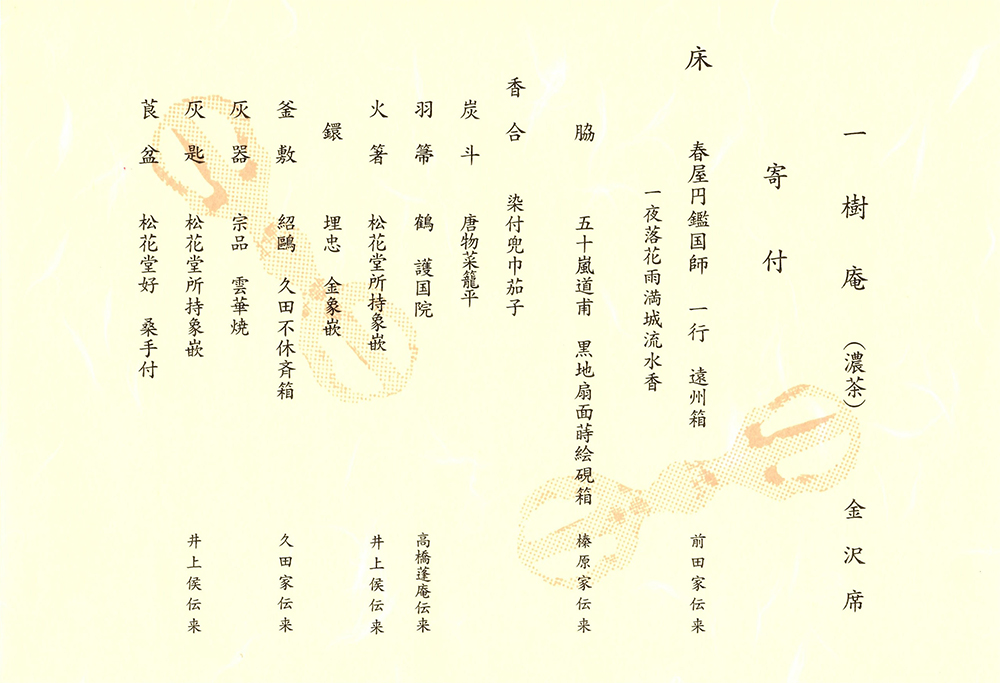 一樹庵（濃茶）　金沢席
寄付
床　春屋円鑑国師　一行　遠州箱　前田家伝来
一夜落花雨満城流水香
脇　五十嵐道甫　黒地扇面蒔絵硯箱　榛原家伝来
香合　染付兜巾茄子
炭斗　唐物菜籠平
羽箒　鶴　護国院　高橋蓬庵伝来
火箸　松花堂所持象嵌　井上侯伝来
鐶　埋忠　金象嵌
釜敷　紹鷗　久田不休斉箱　久田家伝来
灰器　宗品　雲華焼
灰匙　松花堂所持象嵌　井上侯伝来
莨盆　松花堂好　桑手付